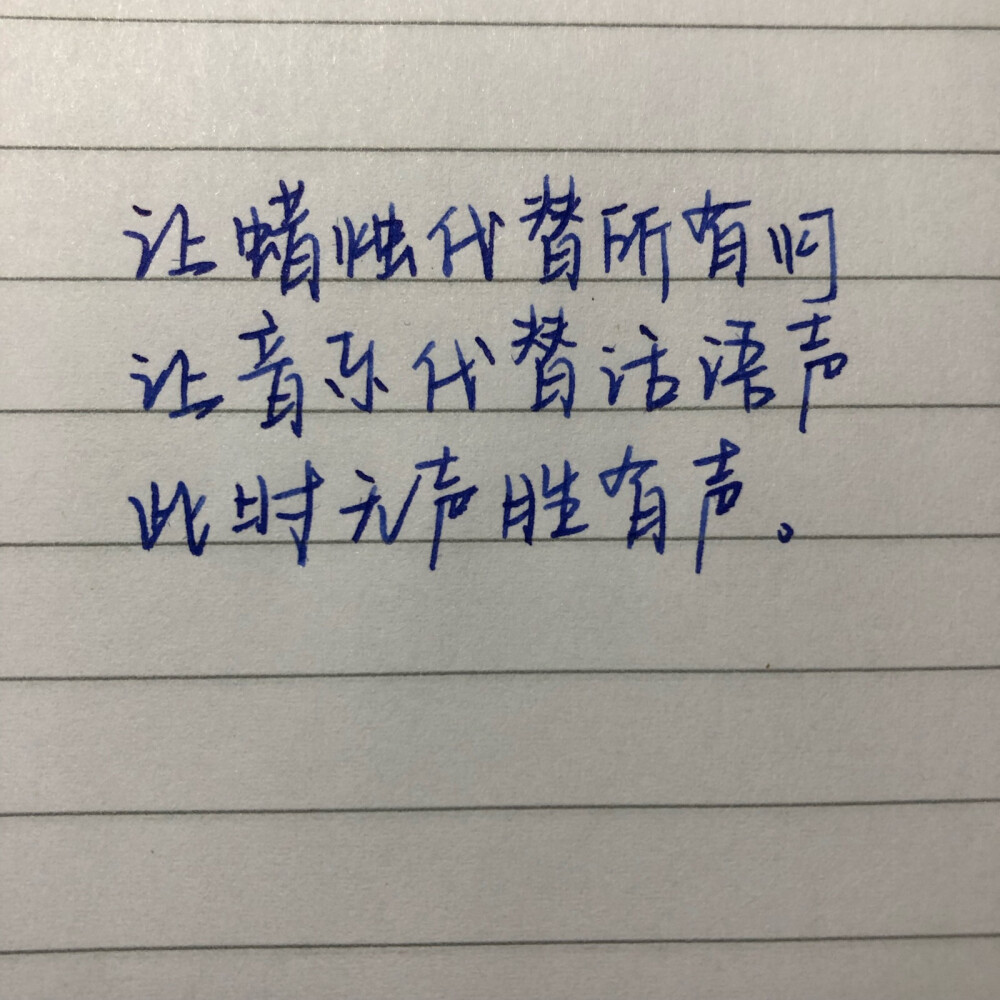 让蜡烛代替所有灯
让音乐代替话语声
此时无声胜有声。